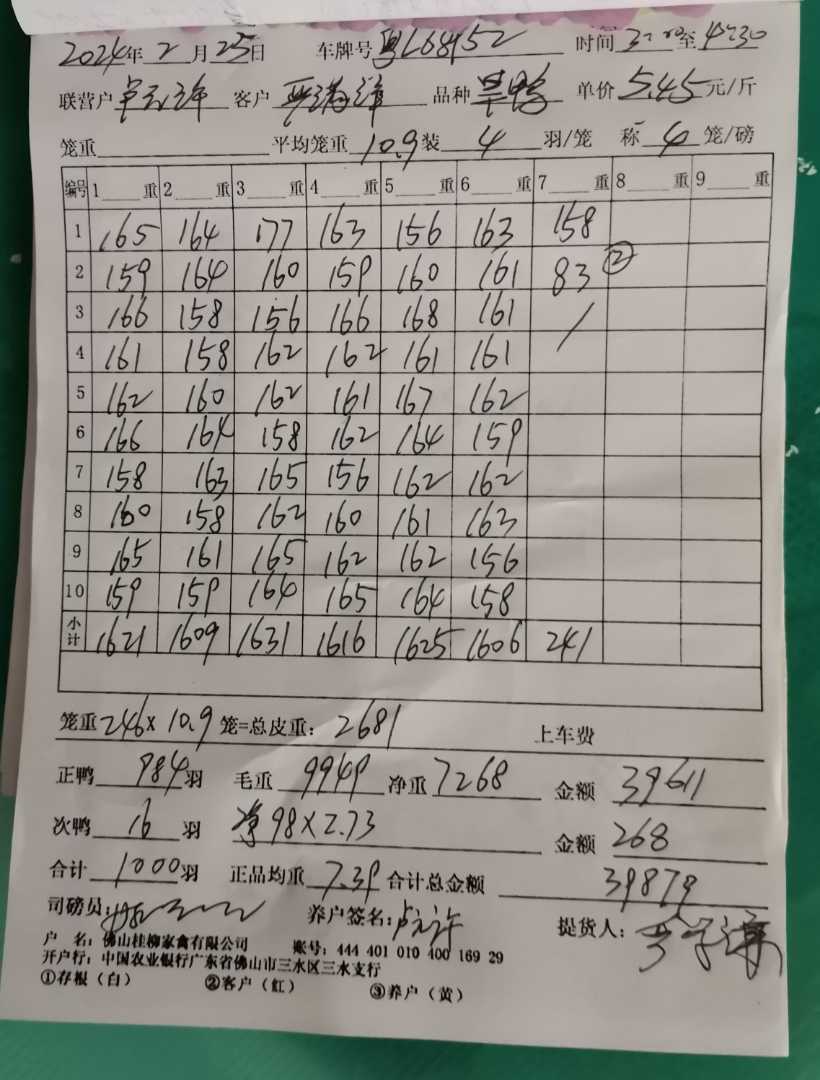 2024年 2 月 25日 车牌号 粤L68152 时间 至 4:30
联营户 客户 品种 单价 5.45 元/斤
笼重 平均笼重 10.9 装 4 羽/笼 称 4 笼/磅
编号 1 重 2 重 3 重 4 重 5 重 6 重 7 重 8 重 9 重
1 165 164 177 163 156 163 158
2 159 164 160 159 160 161 83 ②
3 166 158 156 166 168 161 /
4 161 158 162 162 161 161
5 162 160 162 161 167 162
6 166 164 158 162 164 159
7 158 163 165 156 162 162
8 160 158 162 160 161 163
9 165 161 165 162 162 156
10 159 159 164 165 164 158
小计 1621 1609 1631 1616 1625 1606 241
笼重 246 × 10.9 笼=总皮重: 2681 上车费
正鸭 984 羽 毛重 9949 净重 7268 金额 39611
次鸭 16 羽 净 98×2.73 金额 268
合计 1000 羽 正品均重 7.39 合计总金额 39879
司磅员: 养户签名: 提货人:
户 名: 佛山桂柳家禽有限公司 账号: 444 401 010 400 169 29
开户行: 中国农业银行广东省佛山市三水区三水支行
①存根（白） ②客户（红） ③养户（黄）